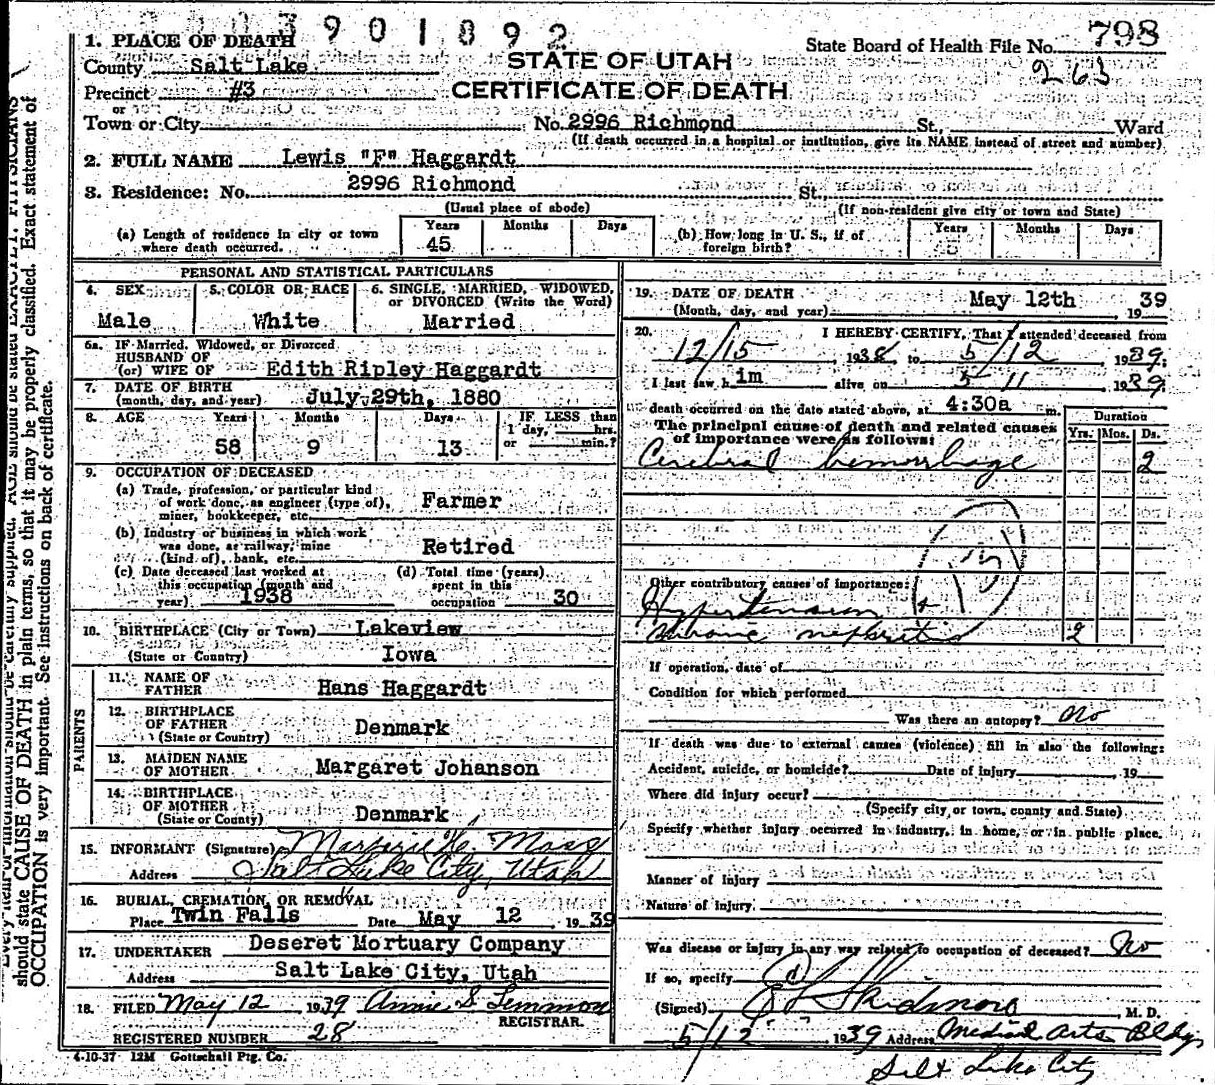 3901892
798
263
State Board of Health File No.
STATE OF UTAH
CERTIFICATE OF DEATH
1. PLACE OF DEATH
County Salt Lake
Precinct #3
or
Town or City No. 2996 Richmond St. Ward
(If death occurred in a hospital or institution, give its NAME instead of street and number)
2. FULL NAME Lewis "F" Haggardt
3. Residence: No. 2996 Richmond St.
(Usual place of abode) (If non-resident give city or town and State)
(a) Length of residence in city or town where death occurred. Years 45 Months Days
(b) How long in U. S., if of foreign birth? Years Months Days
PERSONAL AND STATISTICAL PARTICULARS
4. SEX Male
5. COLOR OR RACE White
6. SINGLE, MARRIED, WIDOWED, or DIVORCED (Write the Word) Married
6a. IF Married, Widowed, or Divorced
HUSBAND OF
(or) WIFE OF Edith Ripley Haggardt
7. DATE OF BIRTH
(month, day, and year) July 29th, 1880
8. AGE Years 58 Months 9 Days 13 IF LESS than 1 day, hrs. or min.?
9. OCCUPATION OF DECEASED
(a) Trade, profession, or particular kind
of work done, as engineer (type of),
miner, bookkeeper, etc. Farmer
(b) Industry or business in which work
was done, as railway, mine
(kind of), bank, etc. Retired
(c) Date deceased last worked at
this occupation (month and
year) 1938
(d) Total time (years)
spent in this
occupation 30
10. BIRTHPLACE (City or Town) Lakeview
(State or Country) Iowa
PARENTS
11. NAME OF FATHER Hans Haggardt
12. BIRTHPLACE OF FATHER (State or Country) Denmark
13. MAIDEN NAME OF MOTHER Margaret Johanson
14. BIRTHPLACE OF MOTHER (State or County) Denmark
15. INFORMANT (Signature) Marjorie H.
Address Salt Lake City, Utah
16. BURIAL, CREMATION, OR REMOVAL
Place Twin Falls Date May 12 1939
17. UNDERTAKER Deseret Mortuary Company
Address Salt Lake City, Utah
18. FILED May 12 1939 Annie S Lemmon
REGISTRAR.
REGISTERED NUMBER 28
4-10-37 12M Gottschall Ptg. Co.
19. DATE OF DEATH
(Month, day, and year) May 12th 1939
20. I HEREBY CERTIFY, That I attended deceased from
12/15 1938 to 5/12 1939;
I last saw him alive on 5 11 1939
death occurred on the date stated above, at 4:30a m.
The principal cause of death and related causes
of importance were as follows:
Duration
Yrs. Mos. Ds.
Cerebral hemorrhage 2
Other contributory causes of importance:
Hypertension +
chronic nephritis 2
If operation, date of
Condition for which performed
Was there an autopsy? No
If death was due to external causes (violence) fill in also the following:
Accident, suicide, or homicide? Date of injury , 19
Where did injury occur?
(Specify city or town, county and State)
Specify whether injury occurred in industry, in home, or in public place.
Manner of Injury
Nature of injury.
Was disease or injury in any way related to occupation of deceased? No
If so, specify
(Signed) E L Skidmore M. D.
5/12 1939 Address Medical Arts Bldg
Salt Lake City
should state CAUSE OF DEATH in plain terms, so that it may be properly classified. Exact statement of
OCCUPATION is very important. See instructions on back of certificate.